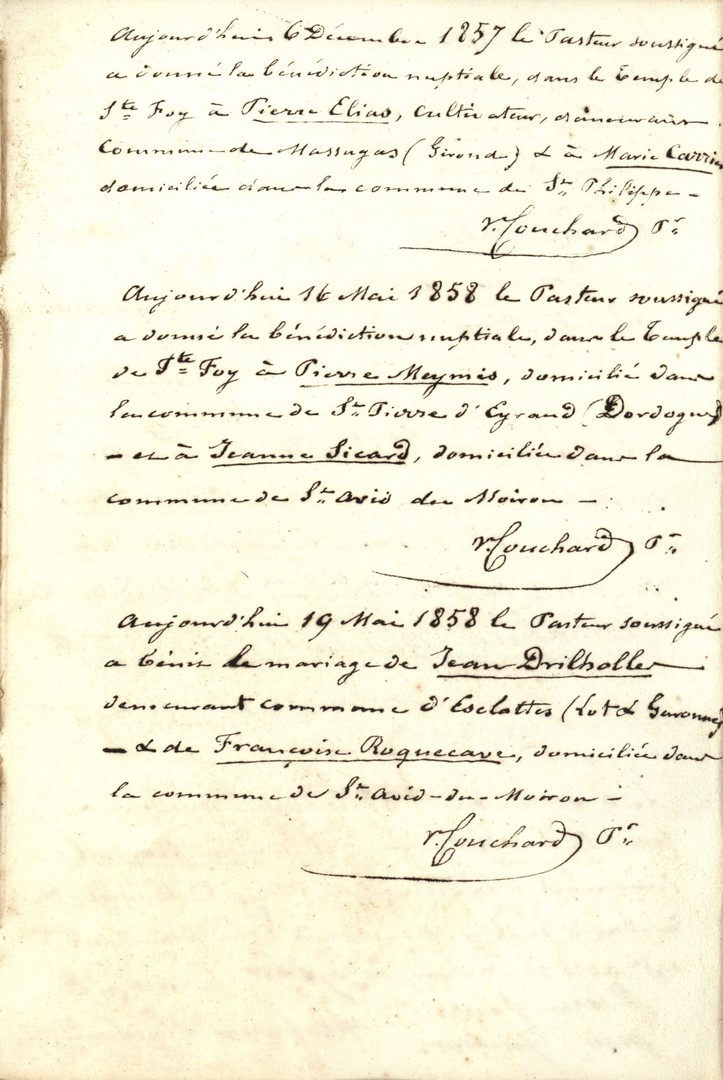 Aujourd'hui 6 Décembre 1857 le Pasteur soussigné
a donné la bénédiction nuptiale, dans le Temple de
Ste Foy à Pierre Elias, cultivateur, demeurant
Commune de Massugas (Gironde) & à Marie Carrier
domiciliée dans la commune de St Philippe -
V. Couchard Pr
Aujourd'hui 16 Mai 1858 le Pasteur soussigné
a donné la bénédiction nuptiale, dans le Temple
de Ste Foy à Pierre Meymes, domicilié dans
la commune de St Pierre d'Eyraud (Dordogne)
- et à Jeanne Sicard, domiciliée dans la
commune de St Avid du Moiron -
V. Couchard Pr
Aujourd'hui 19 Mai 1858 le Pasteur soussigné
a béni le mariage de Jean Drilholle
demeurant commune d'Esclottes (Lot & Garonne)
- & de Françoise Roquecave, domiciliée dans
la commune de St Avid-du-Moiron -
V. Couchard Pr